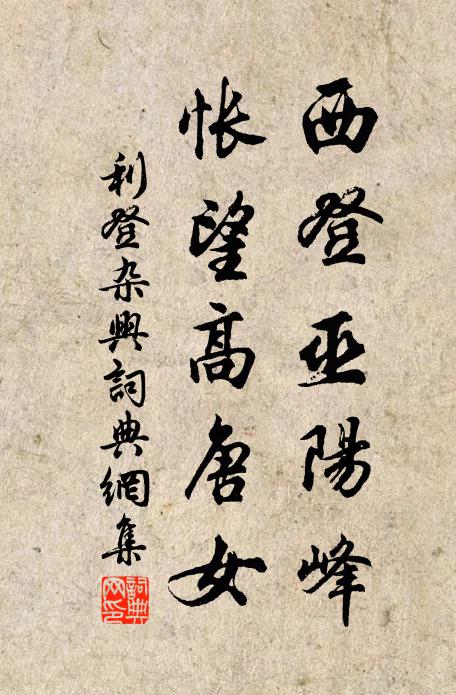 西登巫陽峰
悵望高唐女
利登杂興詞典網集
詞典网印